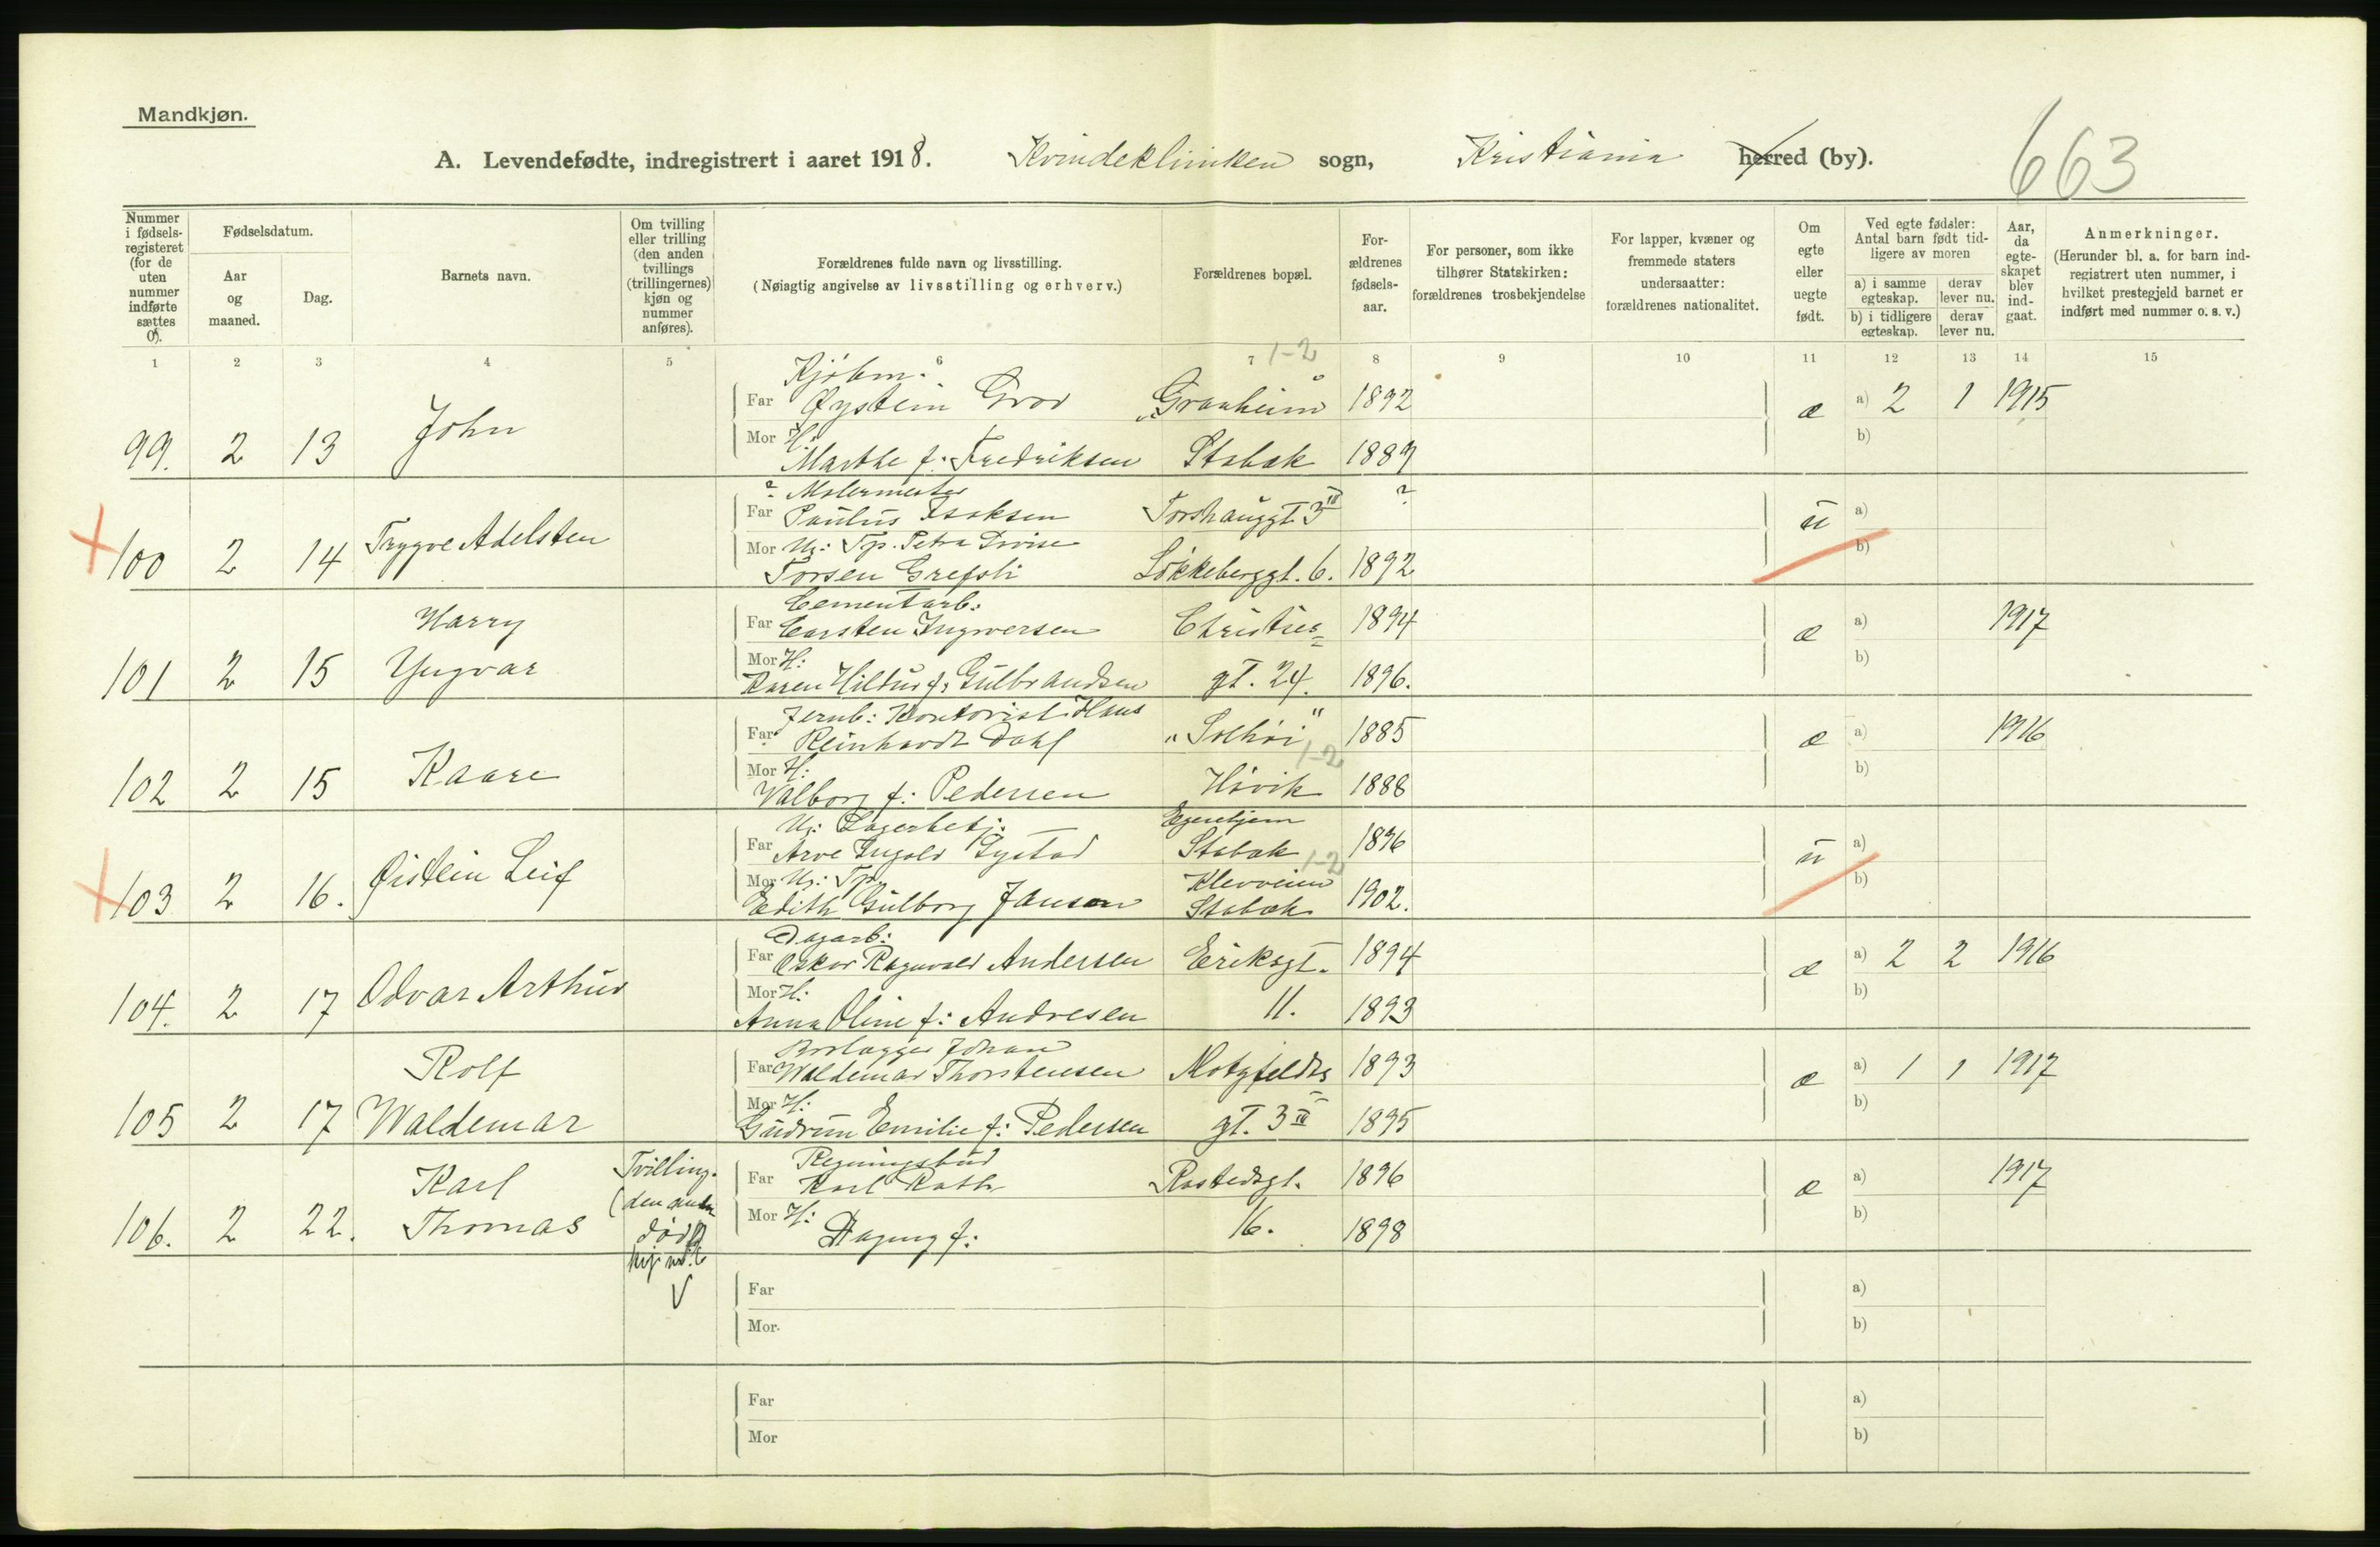 Mandkjøn.
A. Levendefødte, indregistrert i aaret 1918. Kvindeklinikken sogn, Kristiania herred (by).
663
Nummer i fødsels-registeret (for de uten nummer indførte sættes 0).
Fødselsdatum.
Aar og maaned.
Dag.
Barnets navn.
Om tvilling eller trilling (den anden tvillings (trillingernes) kjøn og nummer anføres).
Forældrenes fulde navn og livsstilling.
(Nøiagtig angivelse av livsstilling og erhverv.)
Forældrenes bopæl.
For-ældrenes fødsels-aar.
For personer, som ikke tilhører Statskirken: forældrenes trosbekjendelse
For lapper, kvæner og fremmede staters undersaatter: forældrenes nationalitet.
Om egte eller uegte født.
Ved egte fødsler: Antal barn født tid-ligere av moren
a) i samme egteskap. derav lever nu.
b) i tidligere egteskap. derav lever nu.
Aar, da egte-skapet blev ind-gaat.
Anmerkninger.
(Herunder bl. a. for barn ind-registrert uten nummer, i hvilket prestegjeld barnet er indført med nummer o. s. v.)
1 2 3 4 5 6 7 8 9 10 11 12 13 14 15
1-2
Kjøbm.
Far Øystein Grov "Granheim" 1892 æ a) 2 1 1915
99. 2 13 John
Mor H: Marthe f: Fredriksen Stabæk 1889 b)
? Malermester
Far Paulus Isaksen Torshauggt. 3 III ? u a)
100 2 14 Trygve Adelsten
Mor Ug: Tp. Petra Lovise b)
Torsen Grefsli Løkkeberggt. 6. 1892
Cementarb:
Far Carsten Ingversen Christies 1894 æ a) 1917
101 2 15 Harry Yngvar
Mor H: Karen Hildur f: Gulbrandsen gt. 24. 1896. b)
Jernb: Kontorist Hans
Far Reinhardt Dahl "Solhøi" 1885 æ a) 1916
1-2
102 2 15 Kaare
Mor H: Valborg f: Pedersen Høvik 1888 b)
Ug: Lagerbetj. Egenhjem
Far Arve Ingolv Systad Stabæk 1896 u a)
1-2
103 2 16. Øistein Leif
Mor Ug: Tp. Klevveien b)
Edith Gulborg Jansen Stabæk 1902.
Dagarb:
Far Oskar Ragnvald Andersen Eriksgt. 1894 æ a) 2 2 1916
104. 2 17 Odvar Arthur
Mor H: Anna Oline f: Andresen 11. 1893 b)
Brolægger Johan
Far Waldemar Thorstensen Motzfeldts 1893 æ a) 1 1 1917
105 2 17 Rolf Waldemar
Mor H: Gudrun Emilie f: Pedersen gt. 3 III 1895 b)
Regningsbud
Far Karl Rath Rostedsgt. 1896 æ a) 1917
106. 2 22. Karl Thomas Tvilling. (den anden dødf
Mor H: Dagny f: 16. 1898 b)
V
Far a)
Mor. b)
Far a)
Mor b)